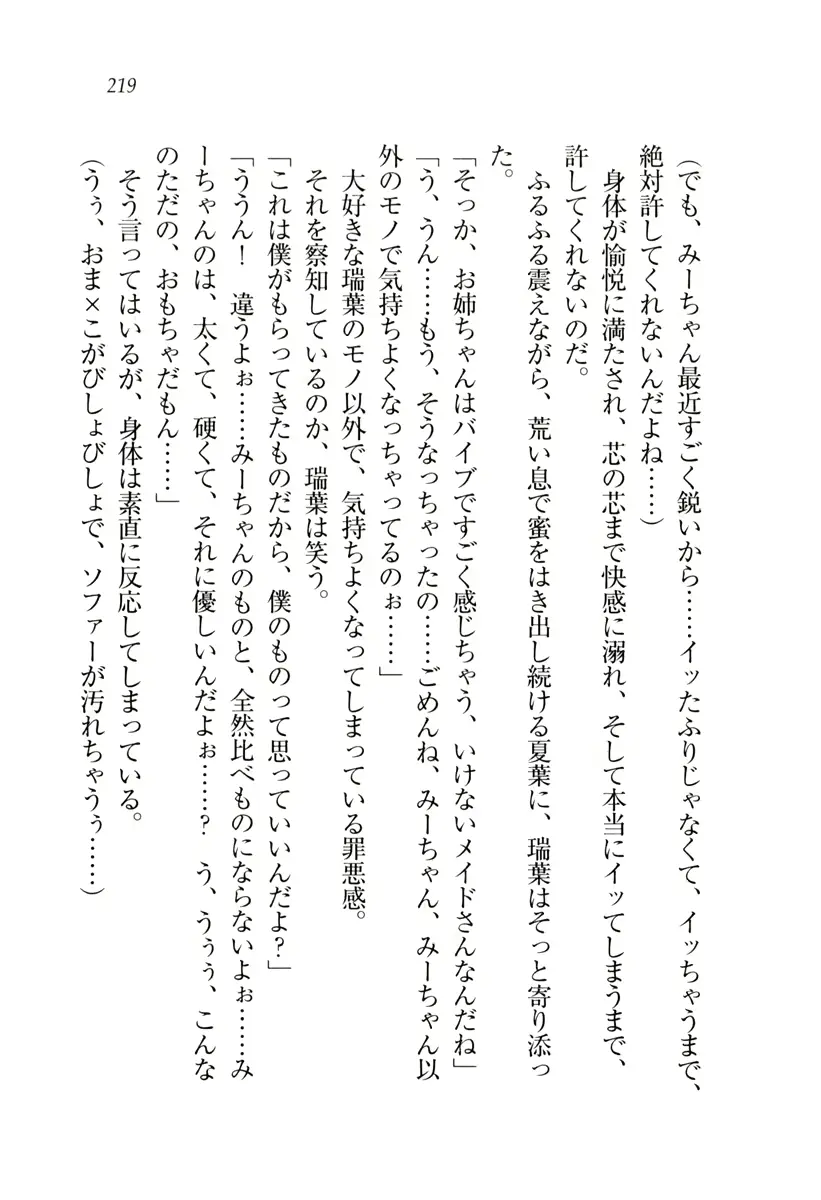 219
(でも、みーちゃん最近すごく鋭いから……イッたふりじゃなくて、イッちゃうまで、
絶対許してくれないんだよね……)
身体が愉悦に満たされ、芯の芯まで快感に溺れ、そして本当にイッてしまうまで、
許してくれないのだ。
ふるふる震えながら、荒い息で蜜をはき出し続ける夏葉に、瑞葉はそっと寄り添っ
た。
「そっか、お姉ちゃんはバイブですごく感じちゃう、いけないメイドさんなんだね」
「う、うん……もう、そうなっちゃったの……ごめんね、みーちゃん、みーちゃん以
外のモノで気持ちよくなっちゃってるのぉ……」
大好きな瑞葉のモノ以外で、気持ちよくなってしまっている罪悪感。
それを察知しているのか、瑞葉は笑う。
「これは僕がもらってきたものだから、僕のものって思っていいんだよ?」
「ううん! 違うよぉ……みーちゃんのものと、全然比べものにならないよぉ……み
ーちゃんのは、太くて、硬くて、それに優しいんだよぉ……? う、うぅぅ、こんな
のただの、おもちゃだもん……」
そう言ってはいるが、身体は素直に反応してしまっている。
(うぅ、おま×こがびしょびしょで、ソファーが汚れちゃうぅ……)